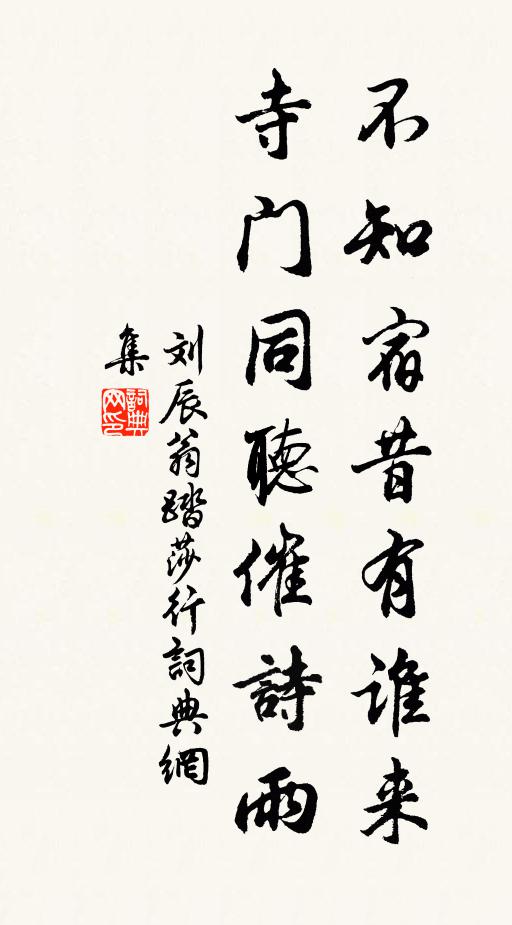 不知宿昔有谁来
寺门同聽催詩雨
刘辰翁踏莎行詞典網
集
詞典
网印